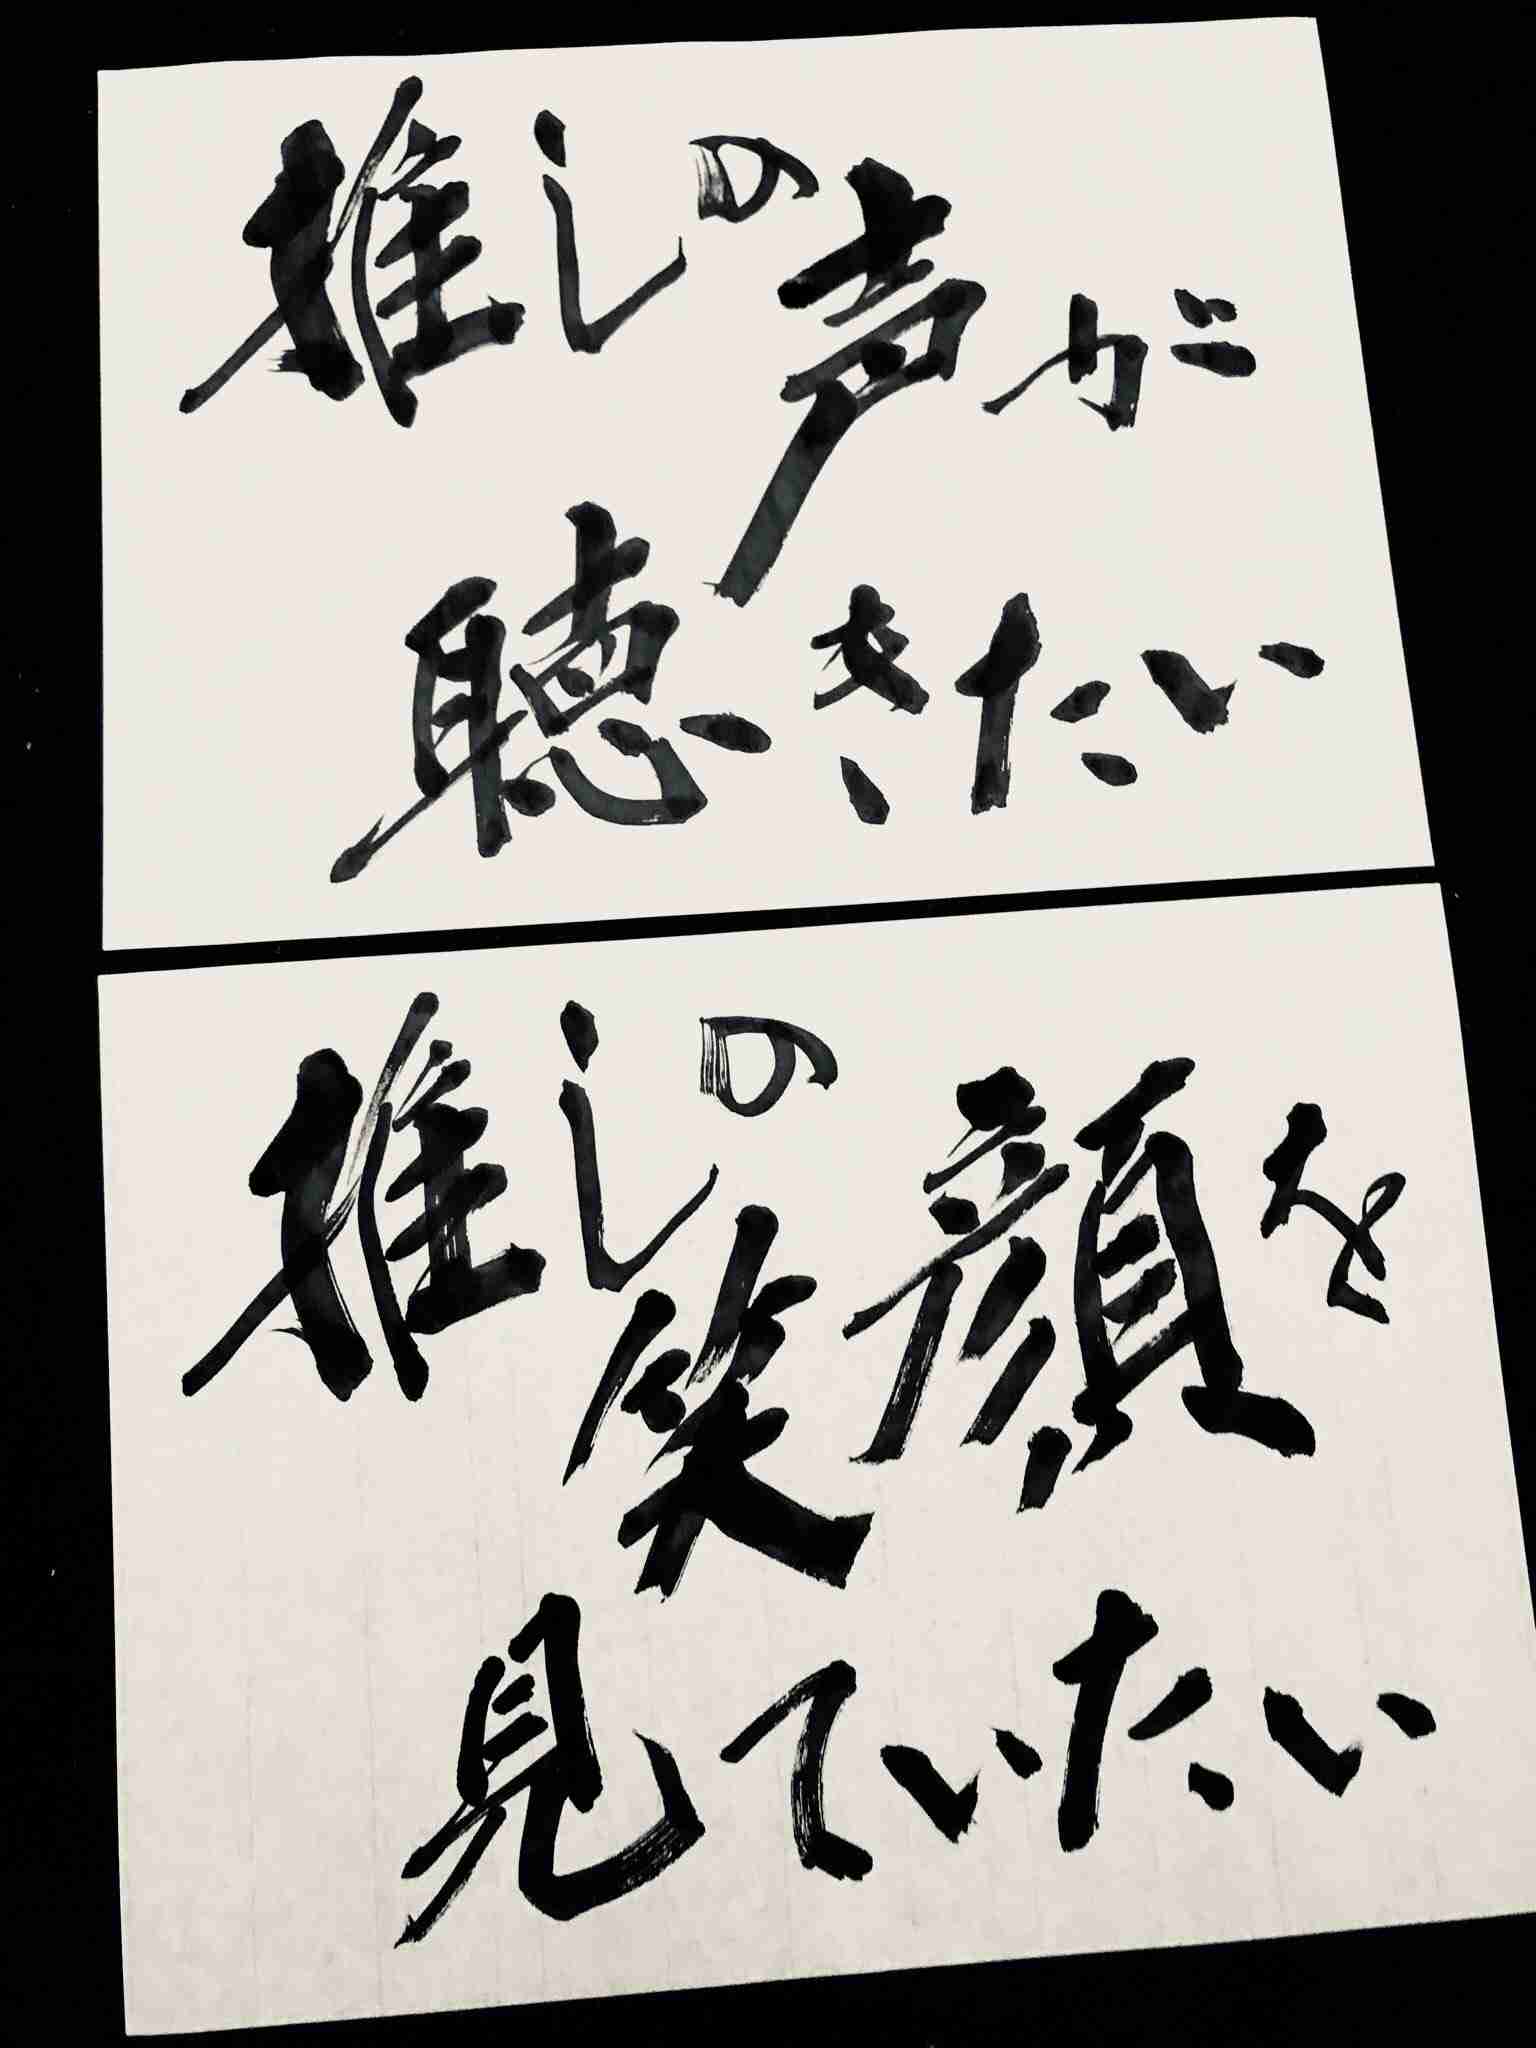 推しの声が
聴きたい
推しの笑顔を
見ていたい